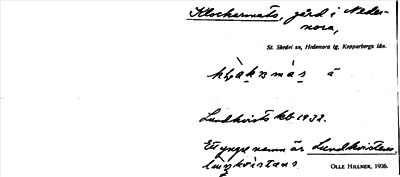 Klockarmats, gård i Neder-
nora,
St. Skedvi sn, Hedemora tg, Kopparbergs län.
å
Lundkvists kb 1932.
Ett yngre namn är Lundkvistens
OLLE HILLNER, 1936.